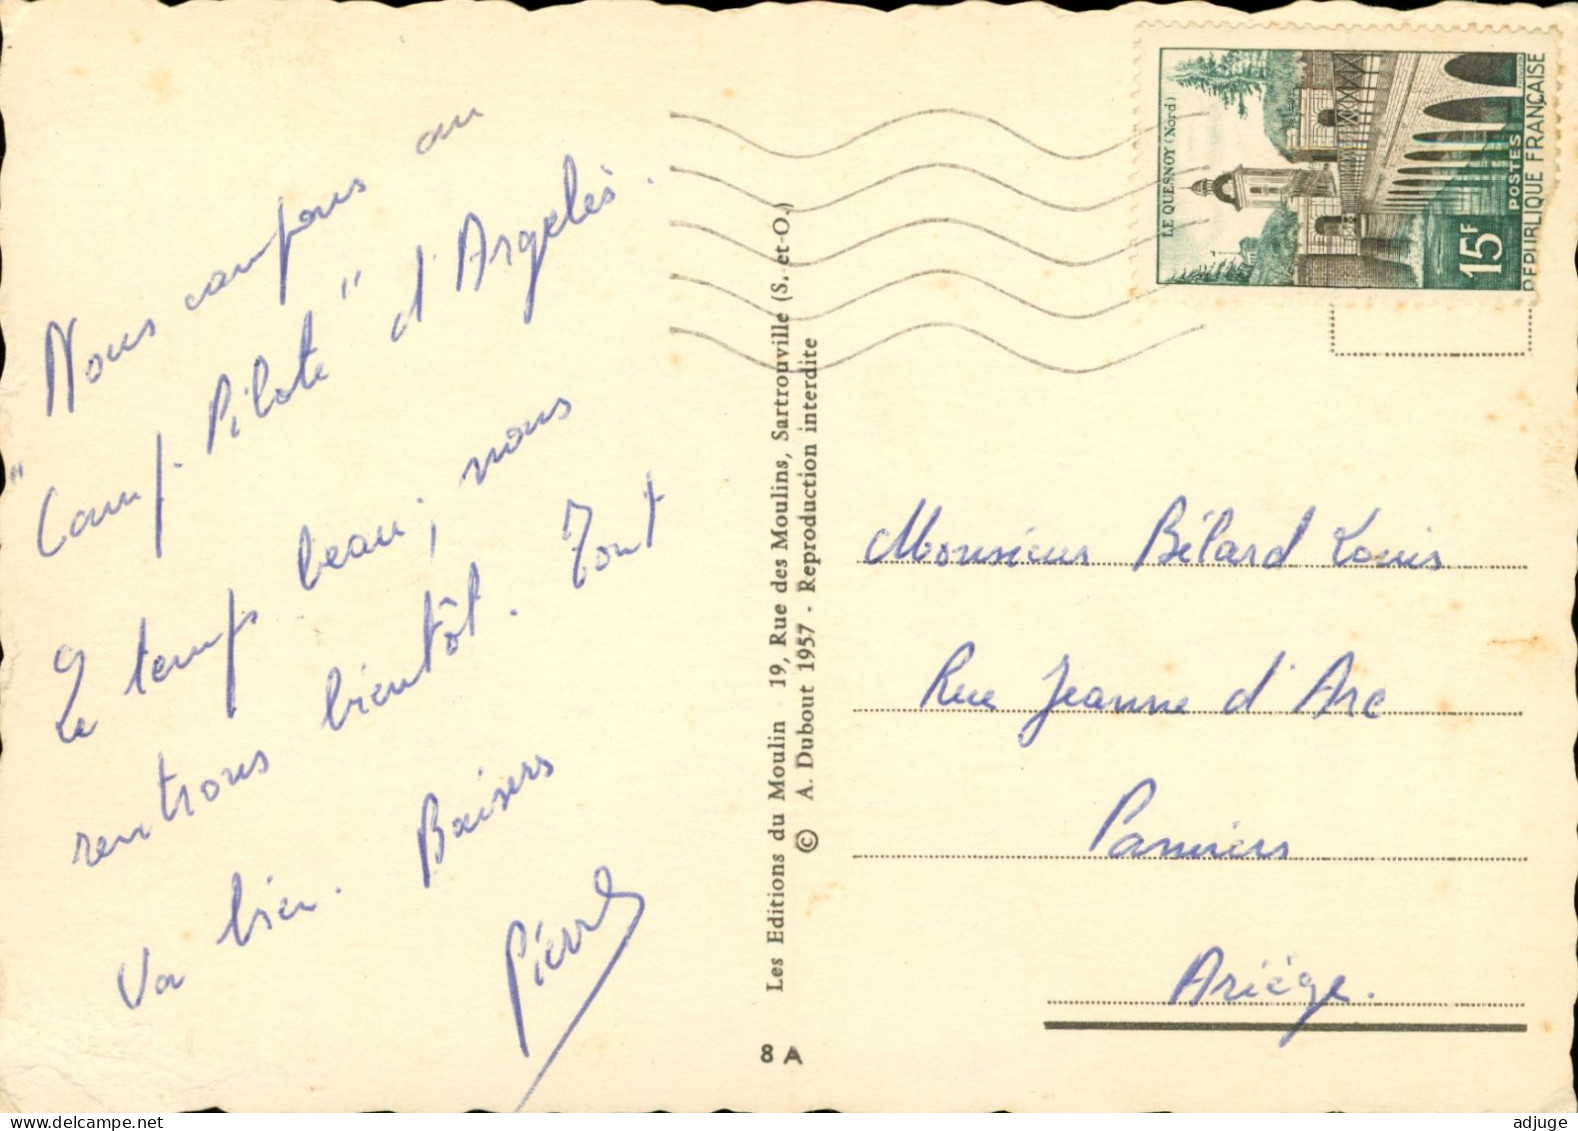 Nous campons au
"Camp. Pilote" d'Argelès.
Le temps beau; nous
rentrons bientôt. Tout
va bien. Baisers
Pierre
Les Editions du Moulin - 19, Rue des Moulins, Sartrouville (S.-et-O.)
© A. Dubout 1957 - Reproduction interdite
8 A
LE QUESNOY (Nord)
15F
POSTES
REPUBLIQUE FRANÇAISE
Monsieur Bélard Louis
Rue Jeanne d'Arc
Pamiers
Ariége.
adjuge